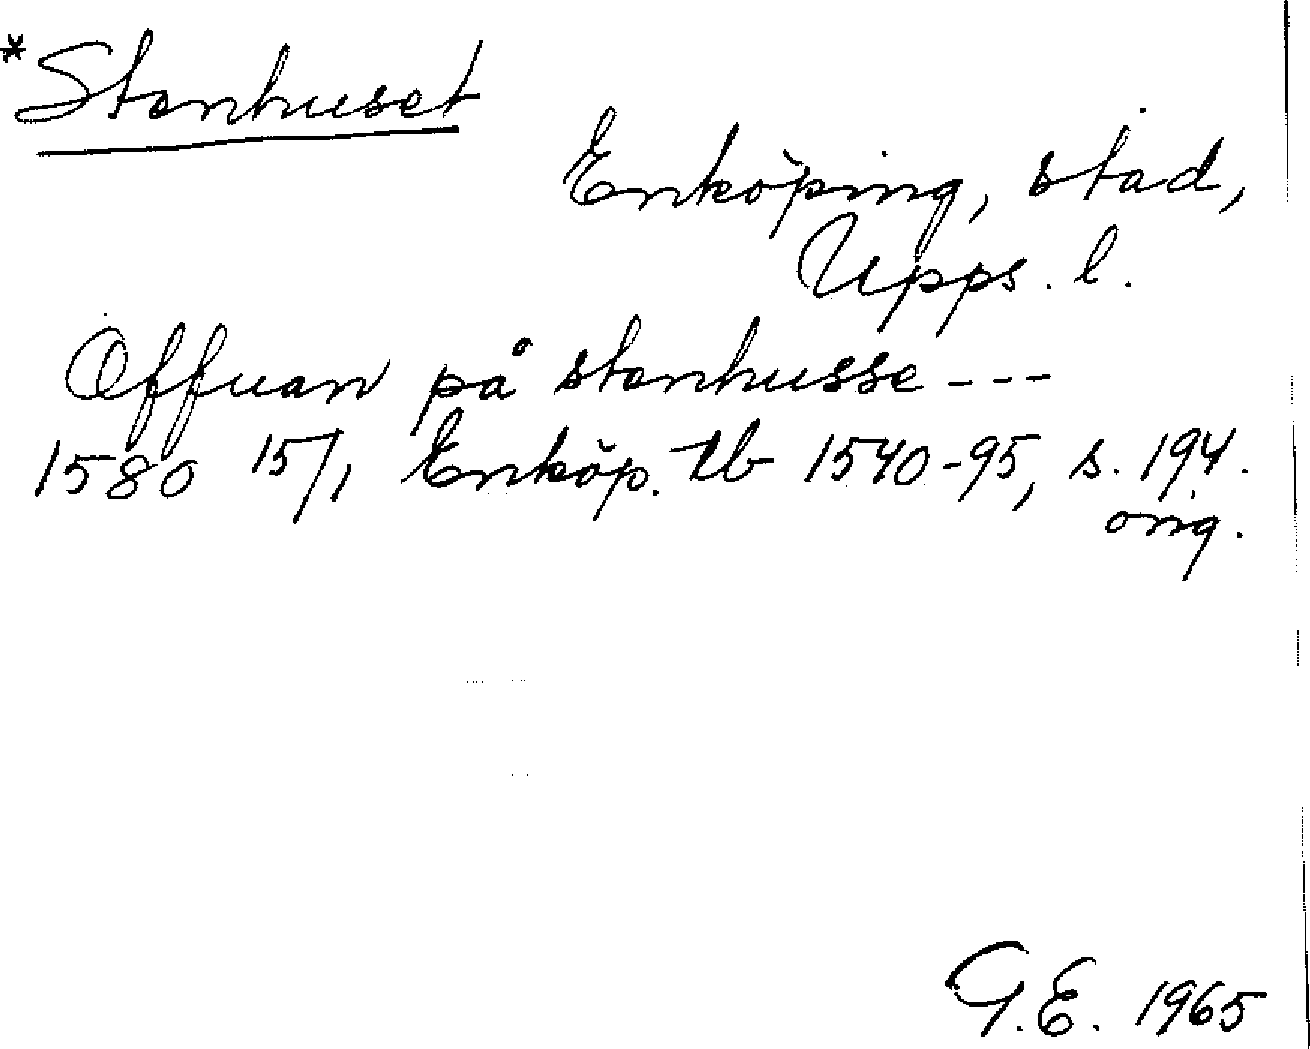 *Stenhuset
Enköping, stad,
Upps. l.
Offuan på stenhusse ---
1580 15/1 Enköp. tb 1540-95, s. 194.
orig.
G.E. 1965